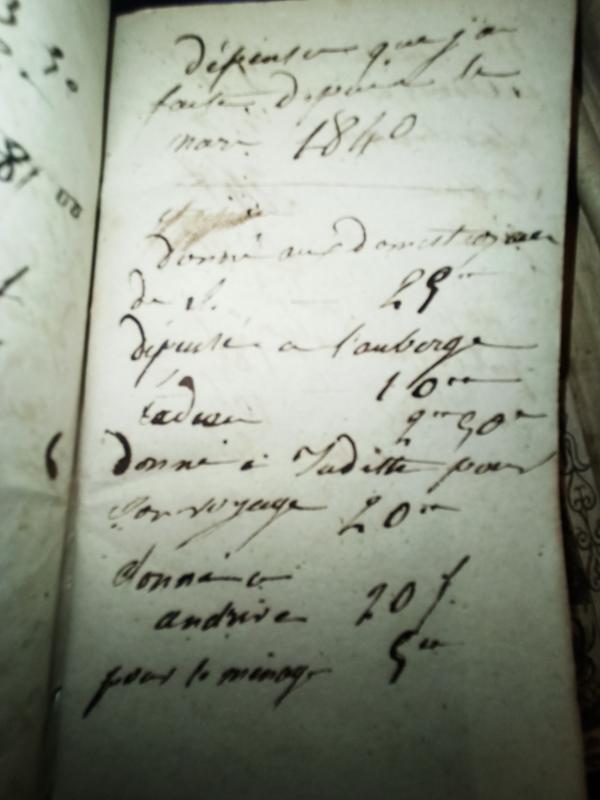 3 30
81
dépense que j'ai
faite depuis le
mars 1840
donné aux domestiques
de 25
dépensé a l'auberge
10
cadeau 2 50
Donné à Juditte pour
son voyage 20
donné a
andrive 20 f
pour le ménage 5